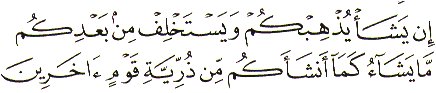 إِن يَشَأْ يُذْهِبْكُمْ وَيَسْتَخْلِفْ مِنۢ بَعْدِكُم
مَّا يَشَآءُ كَمَآ أَنشَأَكُم مِّن ذُرِّيَّةِ قَوْمٍ ءَاخَرِينَ